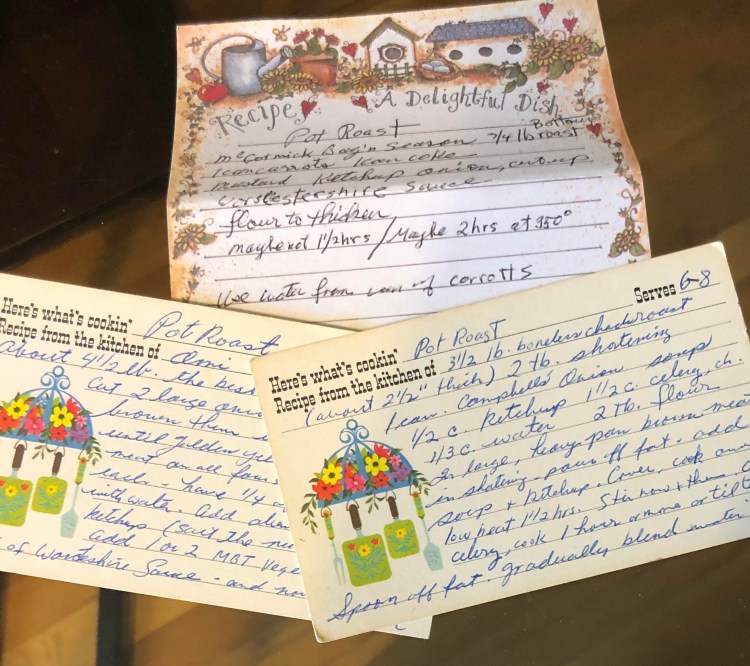 Recipe A Delightful Dish
Pot Roast
Bottom
3/4 lb roast
McCormick Bag'n Season
1 can carrots 1 can coke
mustard Ketchup onion, cut up
Worstestershire Sauce
flour to thicken
maybe not 1 1/2 hrs / Maybe 2 hrs at 350°
Use water from can of corrotts
Here's what's cookin' Pot Roast
Recipe from the kitchen of Omi
About 4 1/2 lb. the
Cut 2 large
brown them
until golden
meat on all
each - have 1/4
with water. Add
ketchup (suit the
add 1 or 2 MBT Vege
of Worteshire Sauce - and
Here's what's cookin' Pot Roast Serves 6-8
Recipe from the kitchen of 3 1/2 lb. boneless chuck roast
(about 2 1/2" thick) 2 tb. shortening
1 can Campbell's Onion soup
1/2 c. Ketchup 1 1/2 c. celery, ch.
1/3 c. water 2 tb. flour
In large, heavy pan brown meat
in shorting. pour off fat. add
soup + Ketchup. Cover, cook over
low heat 1 1/2 hrs. Stir now + then.
celery, cook 1 hour or more or til t
Spoon off fat. gradually blend water